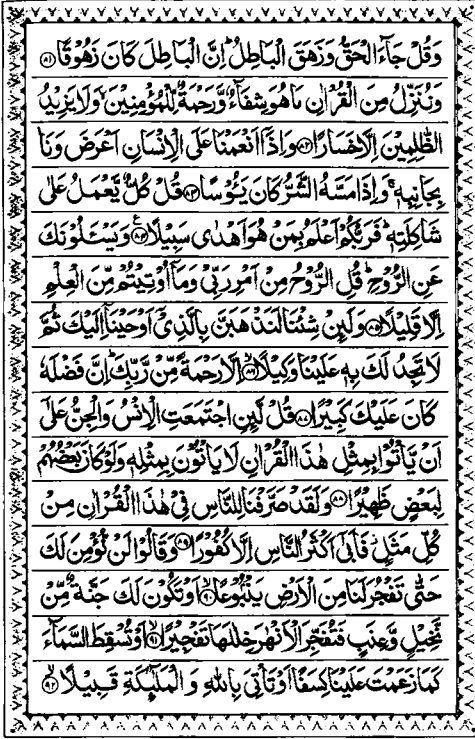 وَقُلْ جَآءَ الْحَقُّ وَزَهَقَ الْبَاطِلُ ؕ اِنَّ الْبَاطِلَ كَانَ زَهُوْقًا ﴿۸۱﴾
وَنُنَزِّلُ مِنَ الْقُرْاٰنِ مَا هُوَ شِفَآءٌ وَّرَحْمَةٌ لِّلْمُؤْمِنِيْنَ ۙ وَلَا يَزِيْدُ
الظّٰلِمِيْنَ اِلَّا خَسَارًا ﴿۸۲﴾ وَاِذَاۤ اَنْعَمْنَا عَلَى الْاِنْسَانِ اَعْرَضَ وَنَاٰ
بِجَانِبِهٖ ۚ وَاِذَا مَسَّهُ الشَّرُّ كَانَ يَـُٔوْسًا ﴿۸۳﴾ قُلْ كُلٌّ يَّعْمَلُ عَلٰى
شَاكِلَتِهٖ ؕ فَرَبُّكُمْ اَعْلَمُ بِمَنْ هُوَ اَهْدٰى سَبِيْلًا ﴿۸۴﴾ وَيَسْـَٔلُوْنَكَ
عَنِ الرُّوْحِ ؕ قُلِ الرُّوْحُ مِنْ اَمْرِ رَبِّيْ وَمَاۤ اُوْتِيْتُمْ مِّنَ الْعِلْمِ
اِلَّا قَلِيْلًا ﴿۸۵﴾ وَلَئِنْ شِئْنَا لَنَذْهَبَنَّ بِالَّذِيْۤ اَوْحَيْنَاۤ اِلَيْكَ ثُمَّ
لَا تَجِدُ لَكَ بِهٖ عَلَيْنَا وَكِيْلًا ﴿۸۶﴾ اِلَّا رَحْمَةً مِّنْ رَّبِّكَ ؕ اِنَّ فَضْلَهٗ
كَانَ عَلَيْكَ كَبِيْرًا ﴿۸۷﴾ قُلْ لَّئِنِ اجْتَمَعَتِ الْاِنْسُ وَالْجِنُّ عَلٰۤى
اَنْ يَّاْتُوْا بِمِثْلِ هٰذَا الْقُرْاٰنِ لَا يَاْتُوْنَ بِمِثْلِهٖ وَلَوْ كَانَ بَعْضُهُمْ
لِبَعْضٍ ظَهِيْرًا ﴿۸۸﴾ وَلَقَدْ صَرَّفْنَا لِلنَّاسِ فِيْ هٰذَا الْقُرْاٰنِ مِنْ
كُلِّ مَثَلٍ ؗ فَاَبٰۤى اَكْثَرُ النَّاسِ اِلَّا كُفُوْرًا ﴿۸۹﴾ وَقَالُوْا لَنْ نُّؤْمِنَ لَكَ
حَتّٰى تَفْجُرَ لَنَا مِنَ الْاَرْضِ يَنْۢبُوْعًا ﴿۹۰﴾ اَوْ تَكُوْنَ لَكَ جَنَّةٌ مِّنْ
نَّخِيْلٍ وَّعِنَبٍ فَتُفَجِّرَ الْاَنْهٰرَ خِلٰلَهَا تَفْجِيْرًا ﴿۹۱﴾ اَوْ تُسْقِطَ السَّمَآءَ
كَمَا زَعَمْتَ عَلَيْنَا كِسَفًا اَوْ تَاْتِيَ بِاللّٰهِ وَالْمَلٰٓئِكَةِ قَبِيْلًا ﴿۹۲﴾